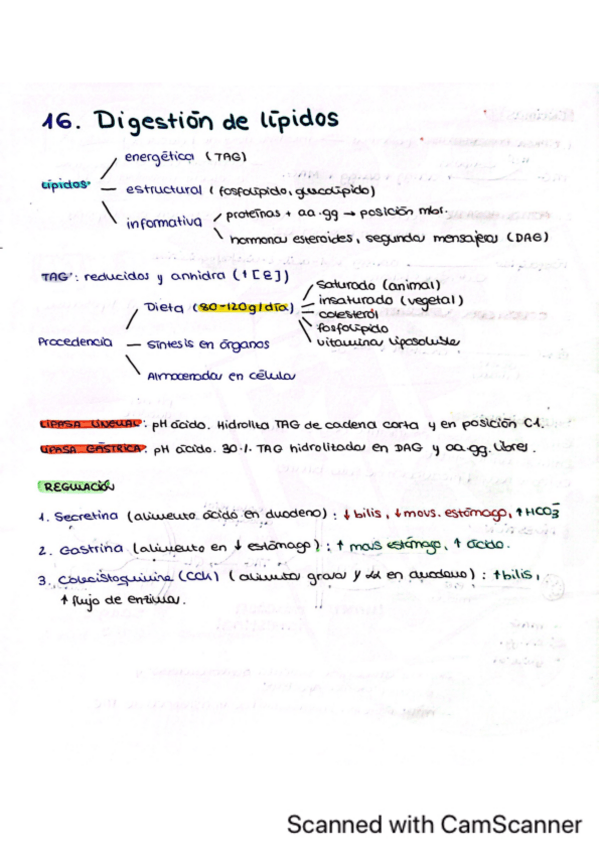 16. Digestión de lípidos
energética (TAG)
lípidos
estructural (fosfolípido, glucolípido)
informativa
proteínas + aa.gg → posición mbr.
hormona esteroides, segundo mensajero (DAG)
TAG: reducidos y anhidra (↑[E])
Procedencia
Dieta (80-120g/día)
saturado (animal)
insaturado (vegetal)
colesterol
fosfolípido
vitamina liposoluble
síntesis en órganos
Almacenada en célula
LIPASA LINGUAL: pH ácido. Hidroliza TAG de cadena corta y en posición C1.
LIPASA GÁSTRICA: pH ácido. 30%. TAG hidrolizado en DAG y aa.gg. libres.
REGULACIÓN
1. Secretina (alimento ácido en duodeno): ↓ bilis, ↓ movs. estómago, ↑ HCO3-
2. Gastrina (alimento en ↓ estómago): ↑ movs estómago, ↑ ácido.
3. Colecistoquinina (CCK) ( grasa y en duodeno): ↑bilis,
↑ flujo de enzima.
Scanned with CamScanner